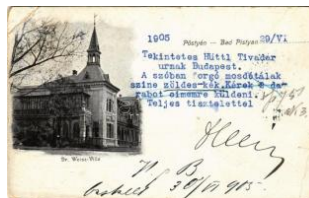 1905 Pöstyén — Bad Pistyan 29/VI
Tekintetes Hüttl Tivadar
urnak Budapest.
A szóban forgó mosdótálak
szine zöldes-kék. Kérek 6 da-
rabot cimemre küldeni.
Teljes tisztelettel
Dr. Weisz-Villa
30/VI 905.